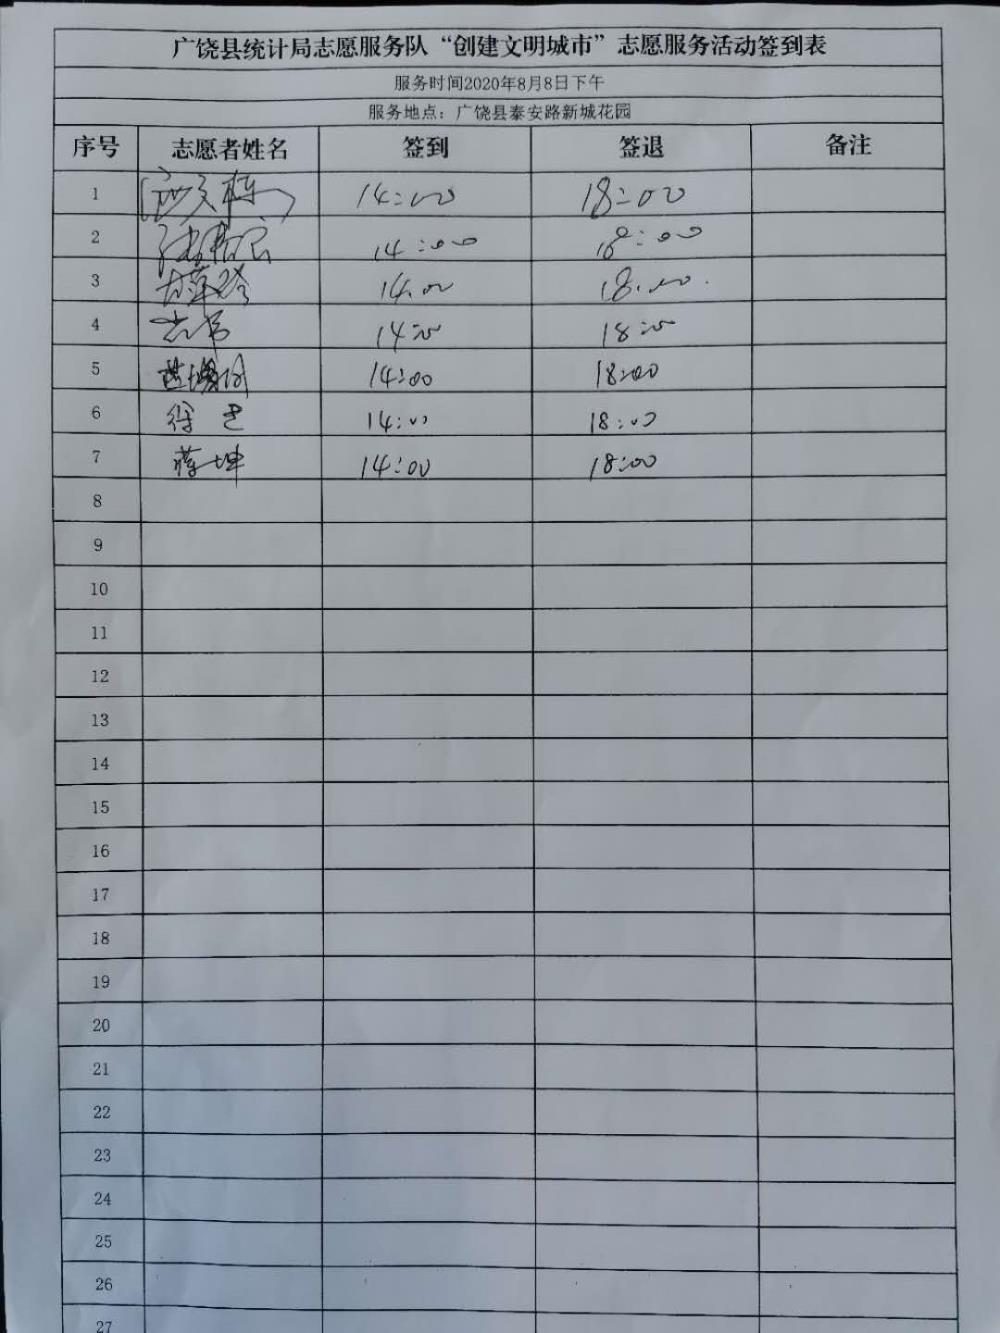 广饶县统计局志愿服务队“创建文明城市”志愿服务活动签到表
服务时间2020年8月8日下午
服务地点：广饶县泰安路新城花园
序号 志愿者姓名 签到 签退 备注
1 14:00 18:00
2 14:00 18:00
3 14:00 18:00
4 14:00 18:00
5 14:00 18:00
6 14:00 18:00
7 蒋坤 14:00 18:00
8
9
10
11
12
13
14
15
16
17
18
19
20
21
22
23
24
25
26
27